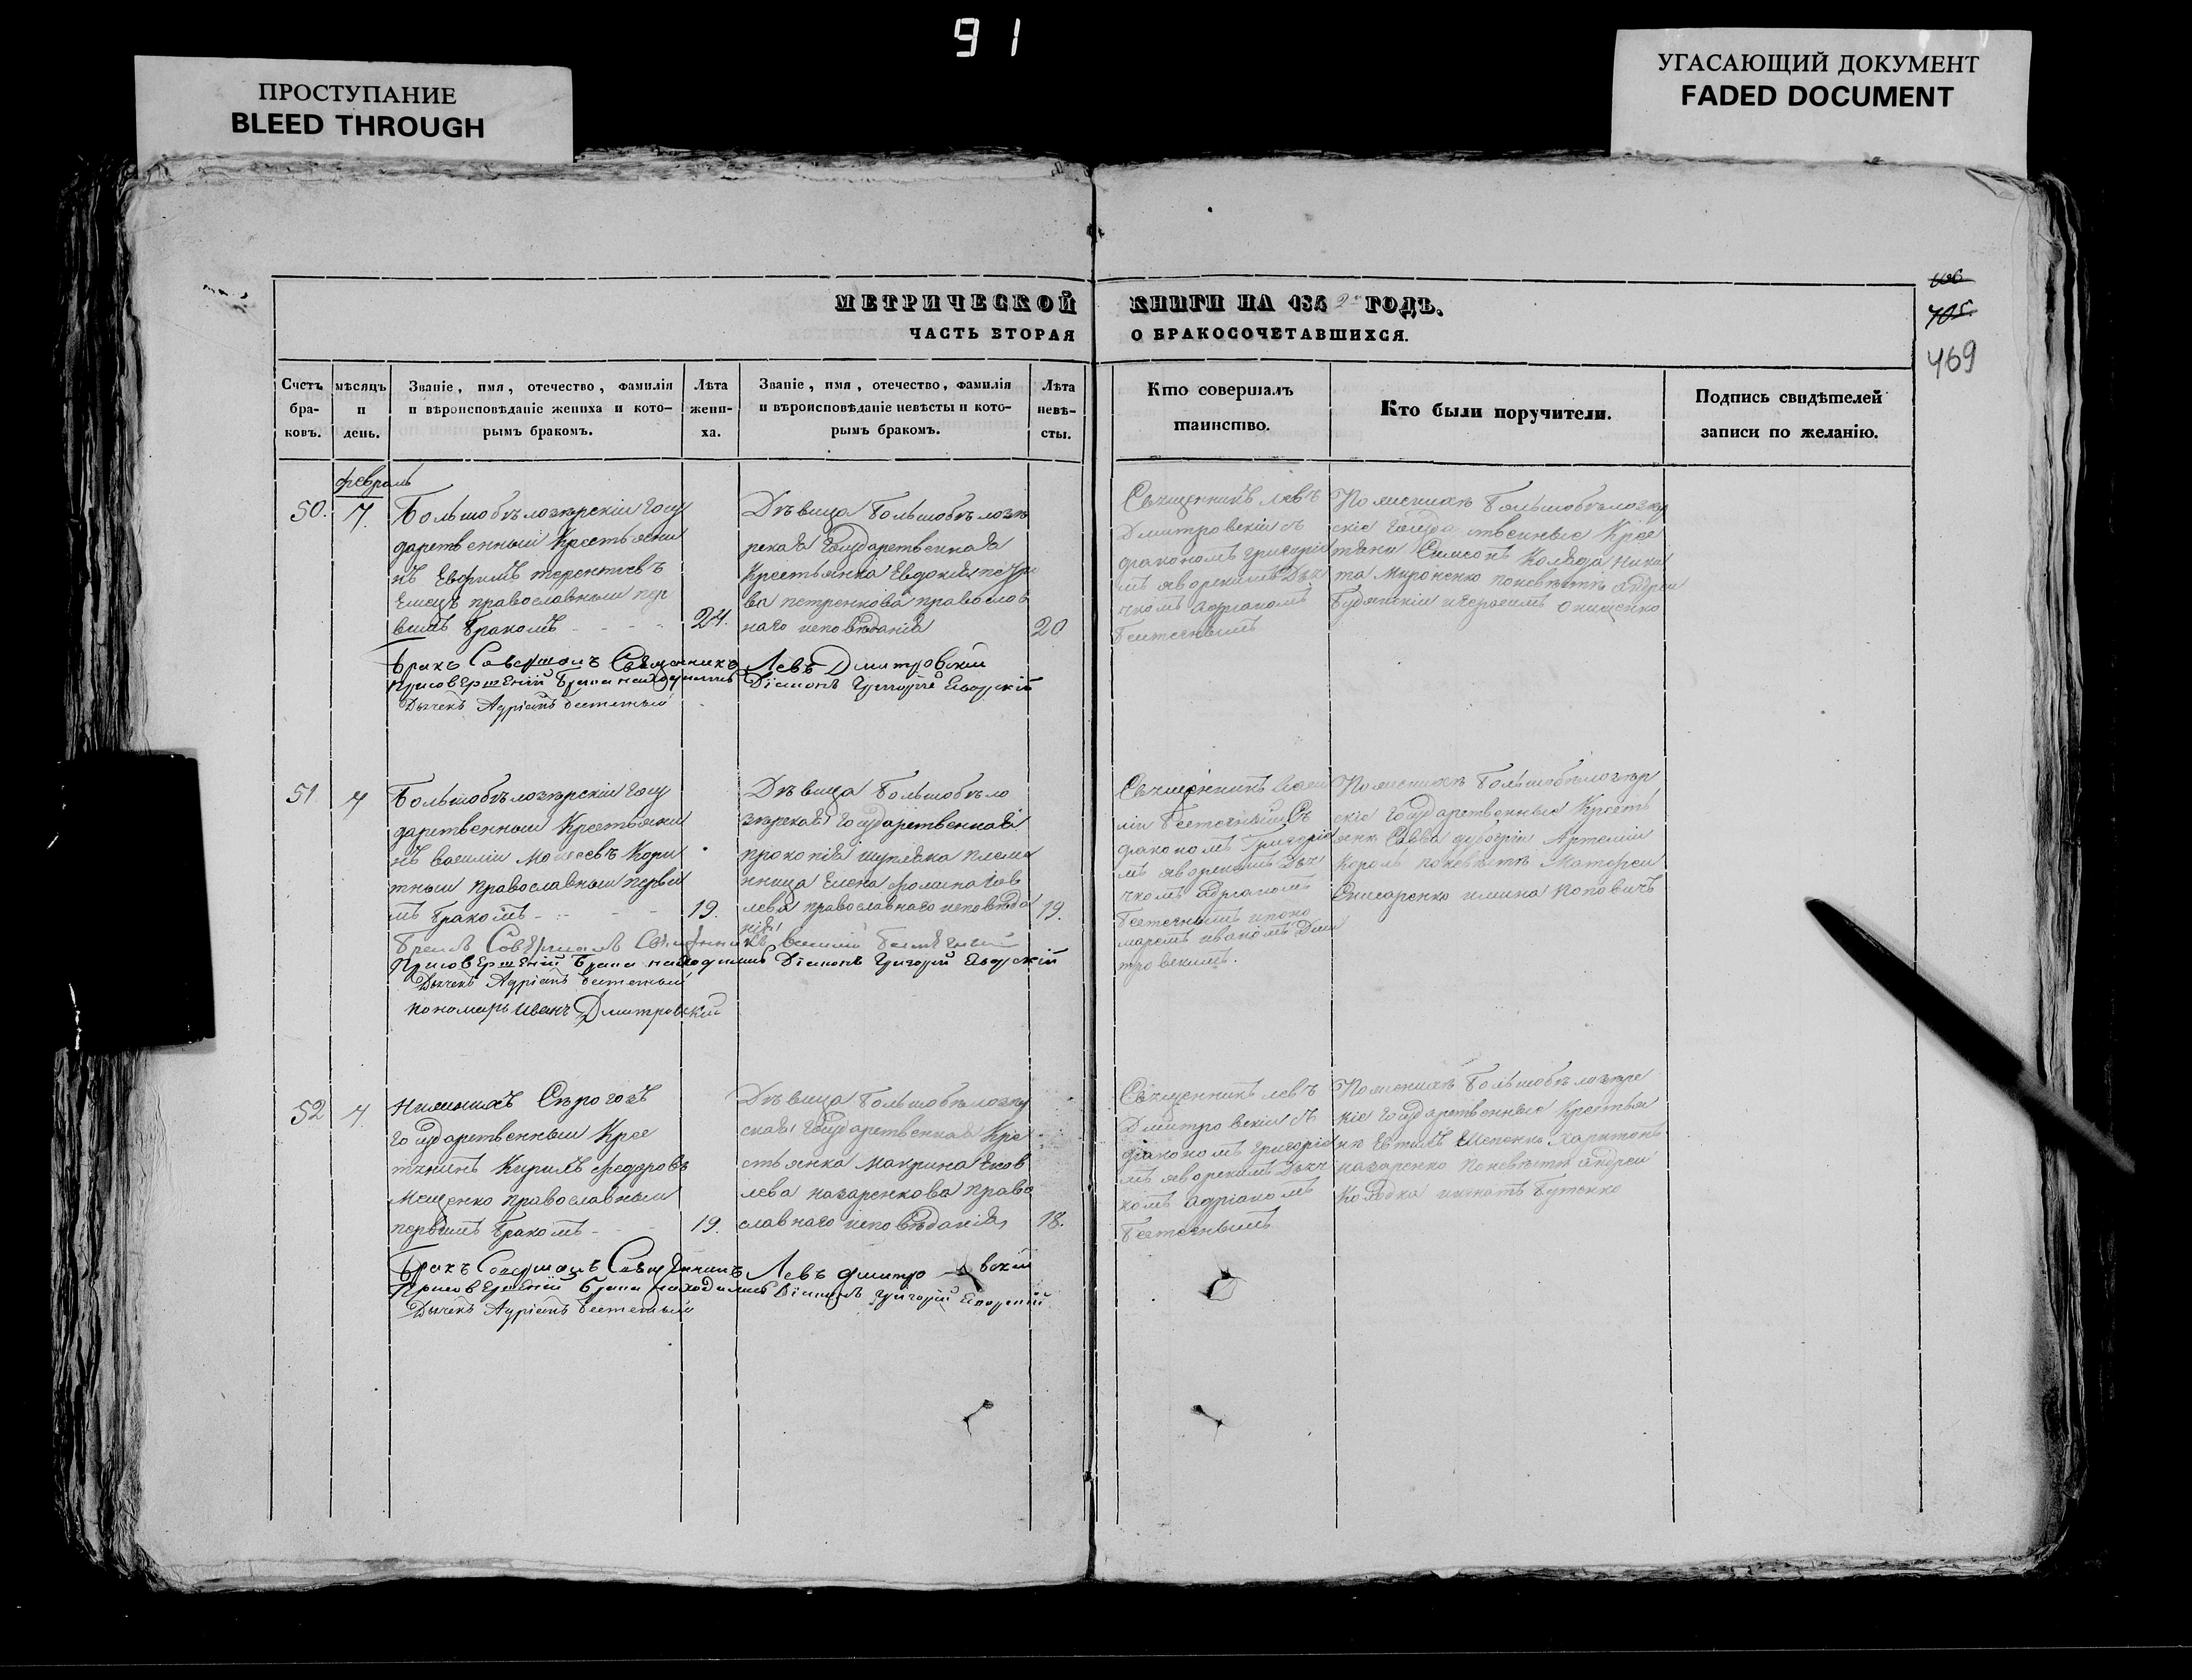 91
ПРОСТУПАНИЕ
BLEED THROUGH
УГАСАЮЩИЙ ДОКУМЕНТ
FADED DOCUMENT
МЕТРИЧЕСКОЙ КНИГИ НА 1852 ГОДЪ.
ЧАСТЬ ВТОРАЯ О БРАКОСОЧЕТАВШИХСЯ.
406
405
469
Счетъ
бра-
ковъ.
мѣсяцъ
и
день.
Званіе, имя, отечество, фамилія
и вѣроисповѣданіе жениха и кото-
рымъ бракомъ.
Лѣта
жени-
ха.
Званіе, имя, отечество, фамилія
и вѣроисповѣданіе невѣсты и кото-
рымъ бракомъ.
Лѣта
невѣ-
сты.
Кто совершалъ
таинство.
Кто были поручители.
Подпись свидѣтелей
записи по желанію.
февраль
50.
7.
Большобѣлозѣрскіи Госу
дарственныи Крестьяни
нъ Ефимъ терентіевъ
Емецъ православныи пер
вымъ бракомъ
24.
Дѣвица Большобѣлозѣ
рская Государственная
Крестьянка Евдокія петро
ва петренкова православ
наго исповѣданія
20
Священникъ левъ
Дмитровскіи съ
діакономъ григоріе
мъ яворскимъ Дья
чкомъ адріаномъ
Бестечнымъ
По женихѣ Большобѣлозер
скіе Государственные Крес
тьяне Симеонъ Коляда Ники
та Мироненко по невѣстѣ андреи
Будянскіи и герасимъ Онищенко
Бракъ Совершалъ Священникъ Левъ Дмитровскій
При совершеніи брака находились Діаконъ Григорій Яворскій
Дьячекъ Адріанъ Бестечный
51.
7
Большобѣлозѣрскіи Госу
дарственныи Крестьяни
нъ василіи Моисеевъ Кори
тныи православныи первы
мъ бракомъ
19.
Дѣвица Большобѣло
зѣрская Государственная
прокопія шупляка племя
нница Елена фомина
лева православнаго исповѣда
нія
19.
Священникъ васи
ліи Бестечныи Съ
діакономъ Григоріе
мъ яворскимъ Дья
чкомъ адріаномъ
Бестечнымъ и поно
маремъ иваномъ Дми
тровскимъ.
По женихѣ Большобѣлозѣр
скіе Государственные Кресть
яне Савва Артеміи
Король по невѣстѣ Матфеи
Писаренко и мина Поповичъ
Бракъ Совершалъ Священникъ василій Бестечный
При совершеніи брака находились Діаконъ Григорій Яворскій
Дьячекъ Адріанъ Бестечный
пономарь иванъ Дмитровскій
52
7.
Нижнихъ Сѣрогозъ
Государственныи Крес
тянинъ Кирилъ федоровъ
Мищенко православныи
первымъ бракомъ
19.
Дѣвица Большобѣлозер
ская Государственная Кре
стьянка Макрина Яков
лева назаренкова право
славнаго исповѣданія
18.
Священникъ левъ
Дмитровскіи съ
діакономъ григоріе
мъ яворскимъ Дьяч
комъ адріаномъ
Бестечнымъ
По женихѣ Большобѣлозере
кіе Государственные Крестья
не Евтихъ Шепенко Харитонъ
назаренко по невѣстѣ андреи
Колодка игнатъ Бутенко
Бракъ Совершалъ Священникъ Левъ дмитровскій
При совершеніи брака находились Діаконъ Григорій Яворскій
Дьячекъ Адріанъ Бестечный